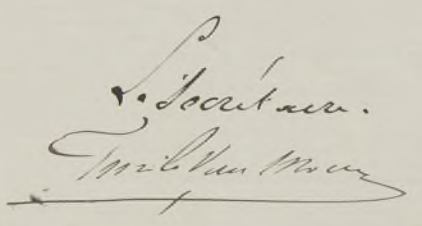 Le Secrétaire.
Emile Van Moer